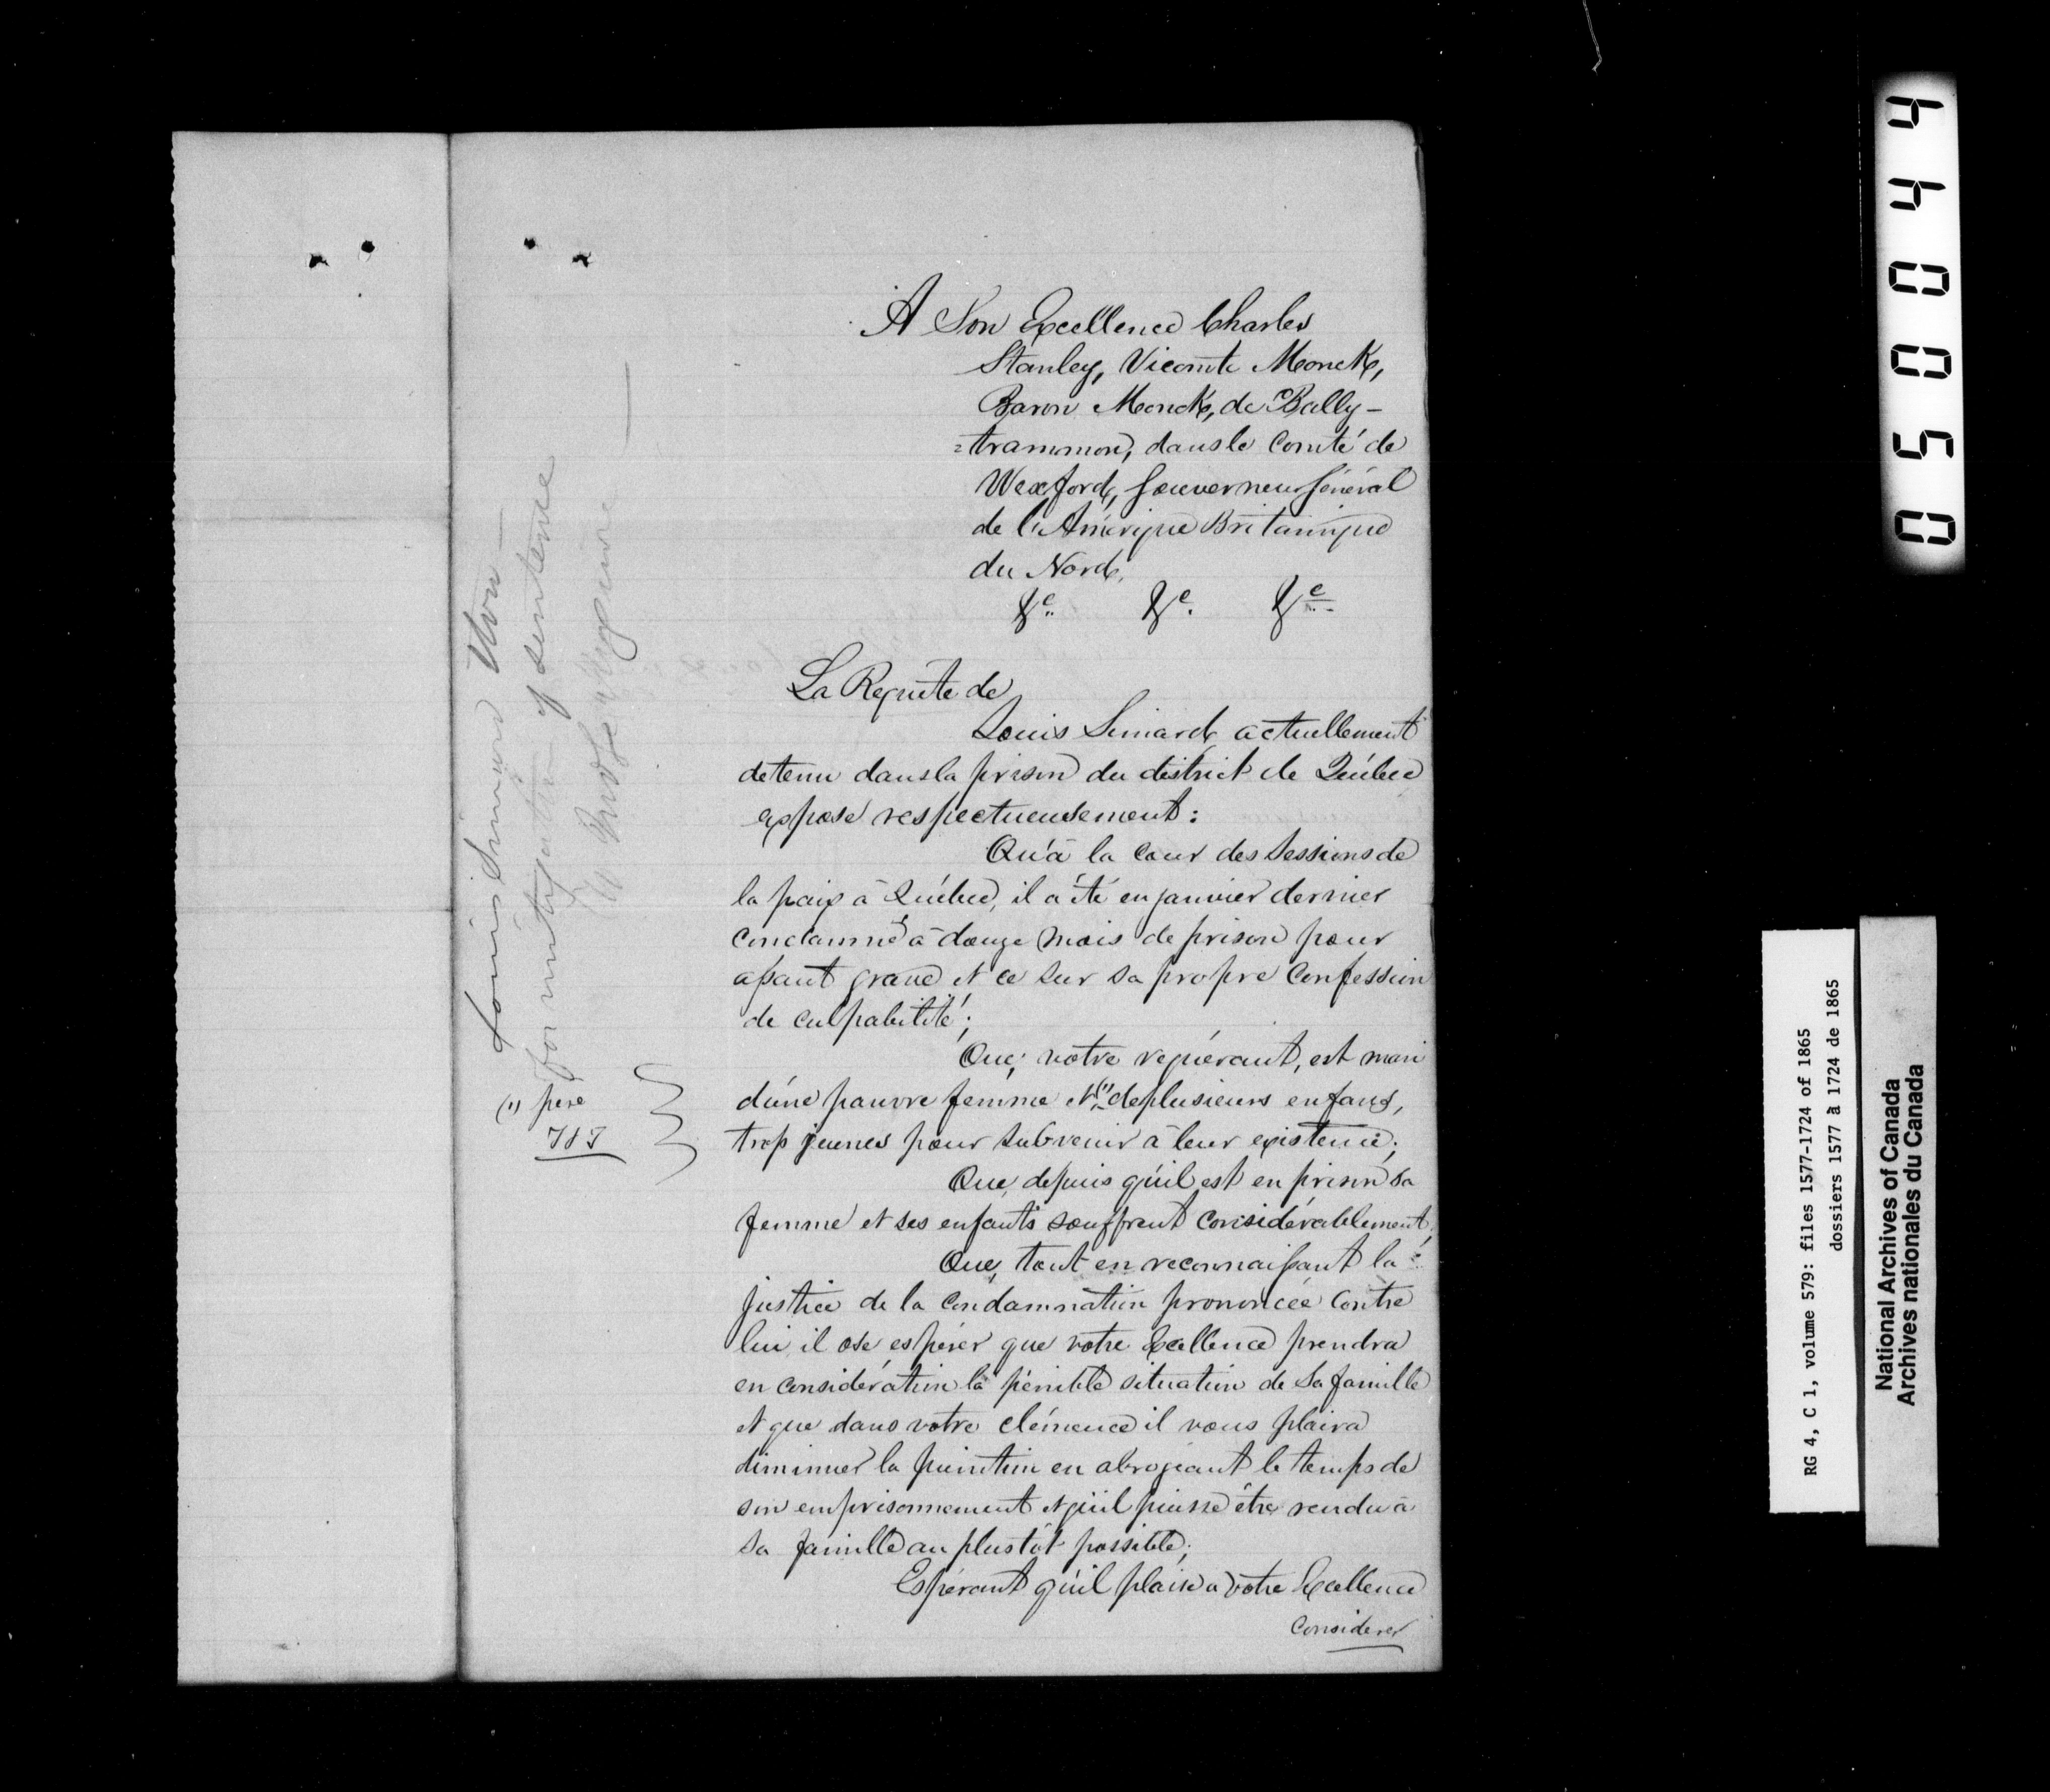 A Son Excellence Charles
Stanley, Vicomte Monck,
Baron Monck, de Bally-
=trammon, dans le Comté de
Wexford, Gouverneur Général
de l'Amérique Britannique
du Nord,
&c. &c. &c.
La Requête de
Louis Simard, actuellement
detenu dans la prison du district de Québec
expose respectueusement:
Qu'à la cour des Sessions de
la paix à Québec, il a été en janvier dernier
condamné à douze mois de prison pour
assaut grave et ce sur sa propre confession
de culpabilité;
Que, votre requérant, est mari
d'une pauvre femme et (1) de plusieurs enfans,
trop jeunes pour subvenir à leur existence;
Que, depuis qu'il est en prison sa
femme et ses enfants souffrent considérablement;
Que, tout en reconnaissant la
justice de la condamnation prononcée contre
lui, il ose espérer que votre Excellence prendra
en considération la pénible situation de sa famille
et que dans votre clémence il vous plaira
diminuer la punition en abrogeant le temps de
son emprisonnement et qu'il puisse être rendu à
sa famille au plustôt possible;
Espérant qu'il plaise a votre Excellence
considerer
(1) père
Louis Simard
for mitigation of sentence
RG 4, C 1, volume 579: files 1577-1724 of 1865
dossiers 1577 à 1724 de 1865
National Archives of Canada
Archives nationales du Canada
050044